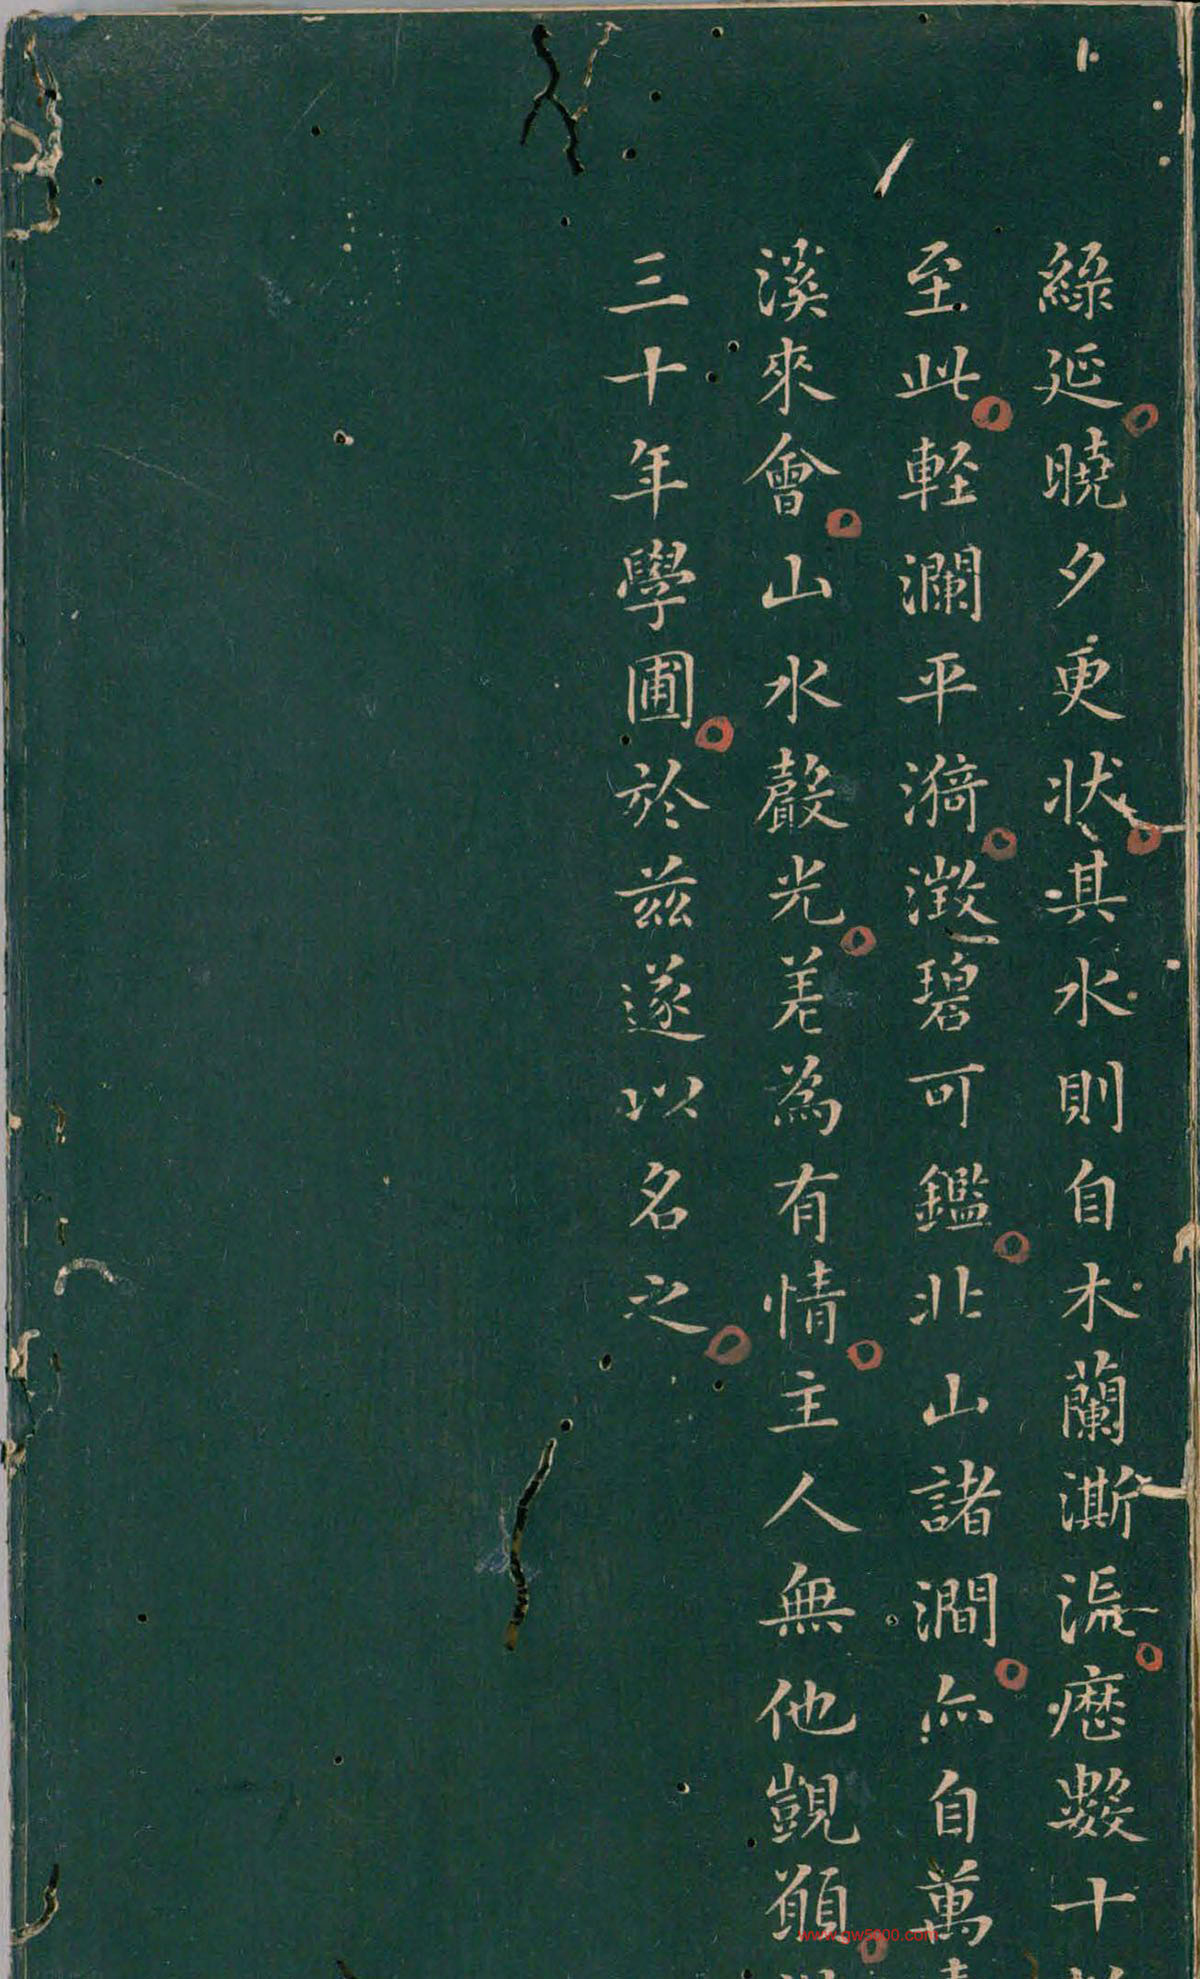 綠延曉夕更狀其水則自木蘭澌流歷數十
至此輕瀾平漪澂碧可鑑北山諸澗亦自萬
溪來會山水聲光差為有情主人無他覬願
三十年學圃於茲遂以名之
www.gw5000.com